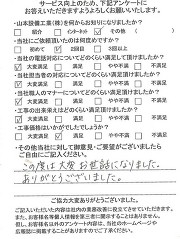 サービス向上のため、下記アンケートに
お答えいただきますようよろしくお願いいたします。
・山本設備工業(株)を何からお知りになりましたか?
紹介 インターネット その他( )
・当社にご依頼頂いたのは何度めですか?
初めて 2回目 3回以上
・当社の電話対応についてどのくらい満足して頂けましたか?
大変満足 満足 やや不満 不満足
・当社担当者の対応についてどのくらい満足して頂けましたか?
大変満足 満足 やや不満 不満足
・当社職人のマナーについてどのくらい満足して頂けましたか?
大変満足 満足 やや不満 不満足
・工事の出来栄えはどのくらい満足して頂けましたか?
大変満足 満足 やや不満 不満足
・工事価格はいかがでしたでしょうか?
大変満足 満足 やや不満 不満足
・その他当社に対して御意見・ご要望がございましたら
ご自由にご記入ください。
この度は大変お世話になりました。
ありがとうございました。
ご協力大変ありがとうございました。